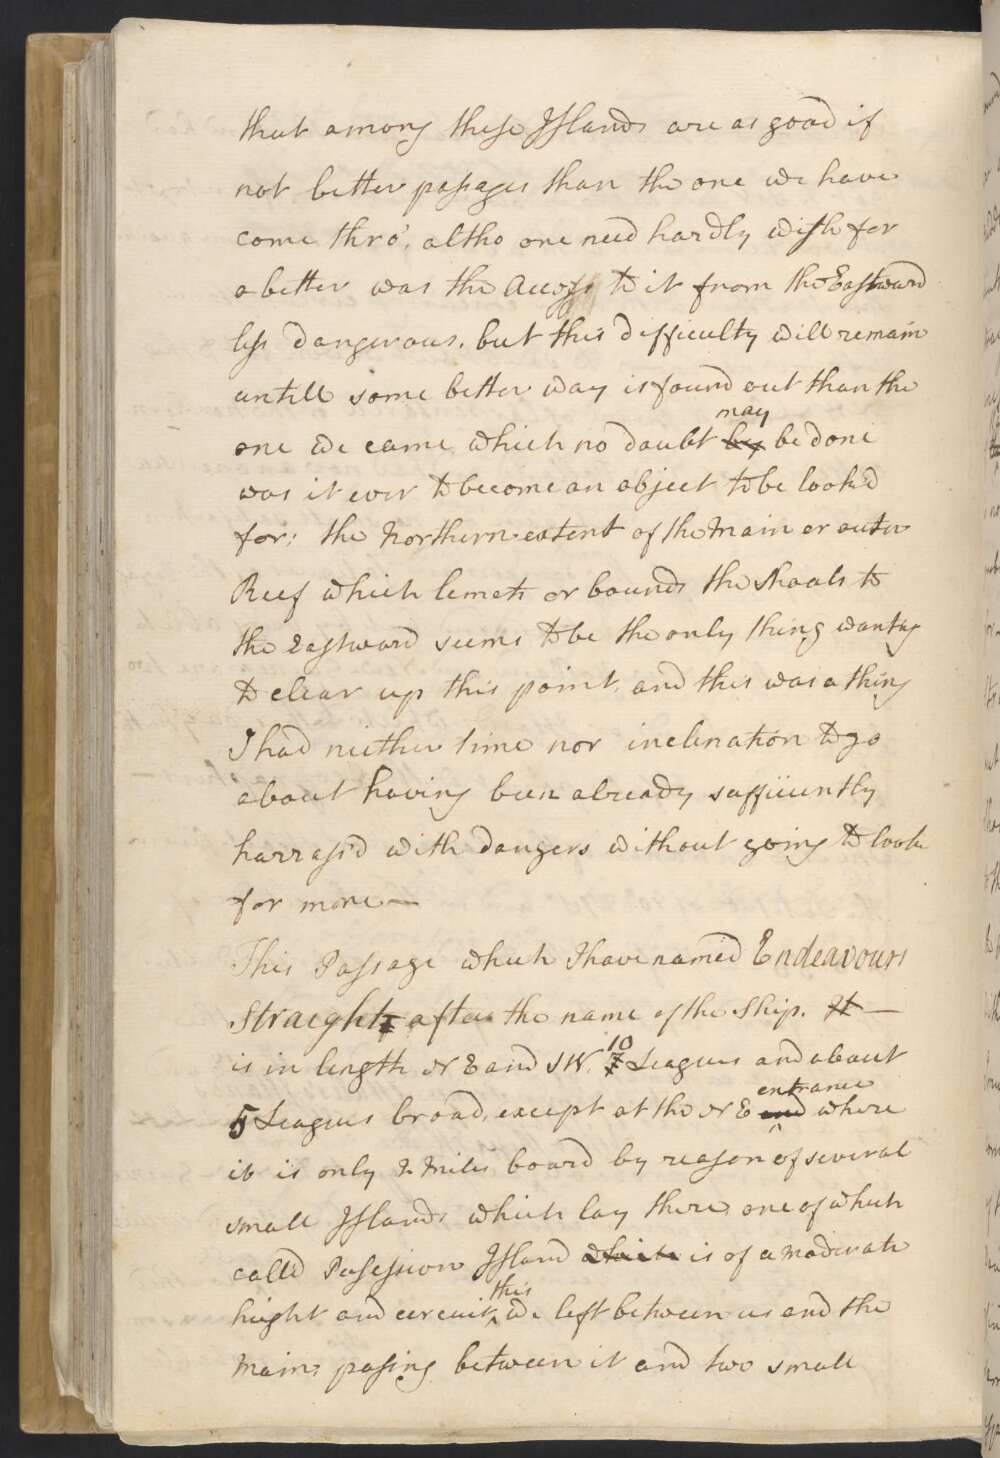 that among these Islands are as good if
not better passages than the one we have
come thro', altho one need hardly wish for
a better was the Access to it from the Eastward
less dangerous. but this difficulty will remain
untill some better way is found out than the
one we came, which no doubt may by be done
was it ever to become an object to be look'd
for: the Northern extent of the Main or outer
Reef which lemets or bounds the Shoals to
the Eastward seems to be the only thing wanting
to clear up this point, and this was a thing
I had neither time nor inclination to go
about having been already sufficiently
harrass'd with dangers without going to look
for more —
This Passage which I have named Endeavours
Straights after the name of the Ship. It —
is in length NE and SW. 10 7 Leagues and about
5 Leagues broad, except at the NE end entrance where
it is only 2 Miles board by reason of several
small Islands which lay there one of which
calld Posession Island which is of a moderate
hieght and circuit, this we left between us and the
Main: passing between it and two small